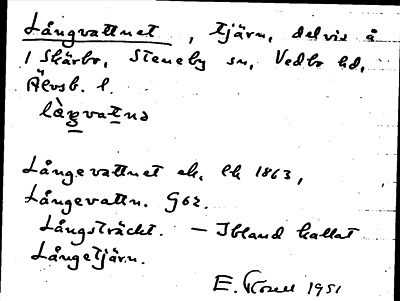 Långvattnet, tjärn, delvis å
1 Skärbo, Steneby sn, Vedbo hd,
Älvsb. l.
làŋvatnə
Långevattnet ek. lk 1863,
Långevattn. G62.
Långsträckt. — Ibland kallat
Långetjärn.
E. 1951